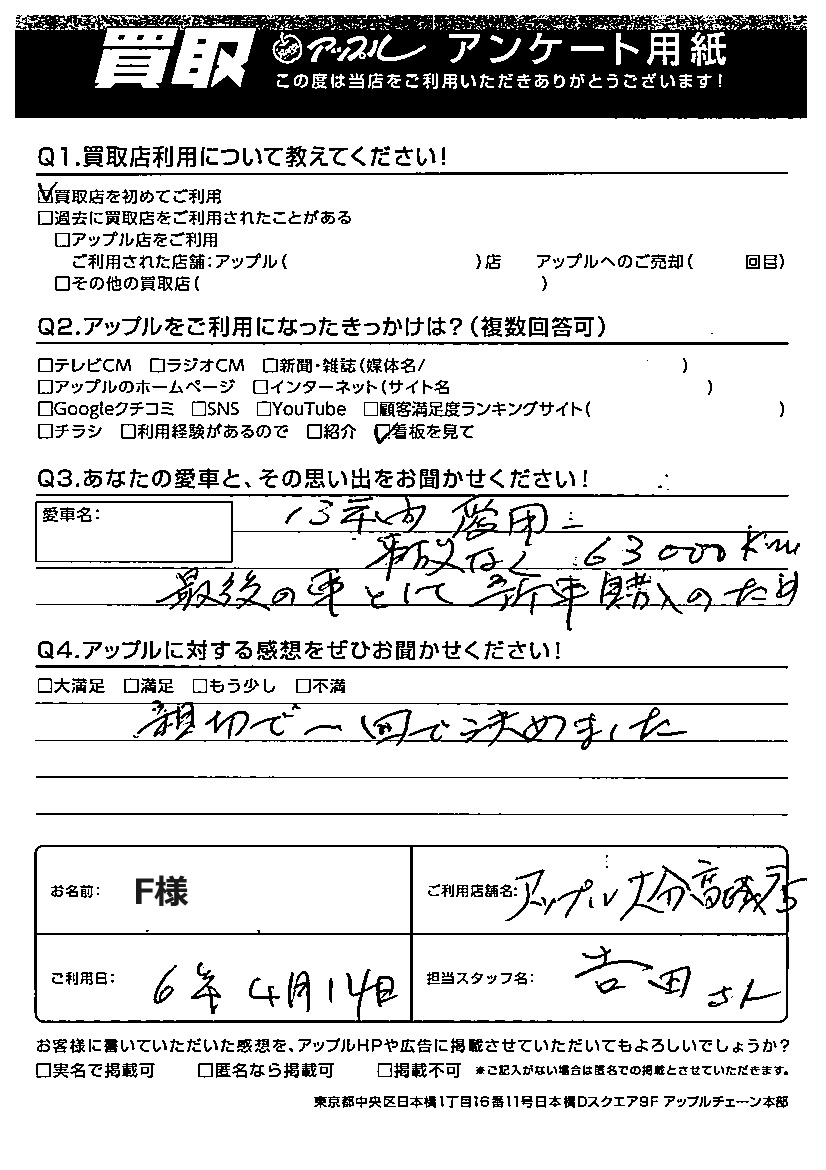 買取 アップル アンケート用紙
この度は当店をご利用いただきありがとうございます!
Q1.買取店利用について教えてください!
☑買取店を初めてご利用
□過去に買取店をご利用されたことがある
□アップル店をご利用
ご利用された店舗:アップル( )店 アップルへのご売却( 回目)
□その他の買取店( )
Q2.アップルをご利用になったきっかけは?(複数回答可)
□テレビCM □ラジオCM □新聞・雑誌(媒体名/ )
□アップルのホームページ □インターネット(サイト名 )
□Googleクチコミ □SNS □YouTube □顧客満足度ランキングサイト( )
□チラシ □利用経験があるので □紹介 ☑看板を見て
Q3.あなたの愛車と、その思い出をお聞かせください!
愛車名: 13年間 愛用
事故なく 63000km
最後の車として 新車購入のため
Q4.アップルに対する感想をぜひお聞かせください!
□大満足 □満足 □もう少し □不満
親切で一回で決めました
お名前: F様 ご利用店舗名:アップル大分高城店
ご利用日: 6年4月14日 担当スタッフ名: 吉田さん
お客様に書いていただいた感想を、アップルHPや広告に掲載させていただいてもよろしいでしょうか?
□実名で掲載可 □匿名なら掲載可 □掲載不可 *ご記入がない場合は匿名での掲載とさせていただきます。
東京都中央区日本橋1丁目16番11号日本橋Dスクエア9F アップルチェーン本部